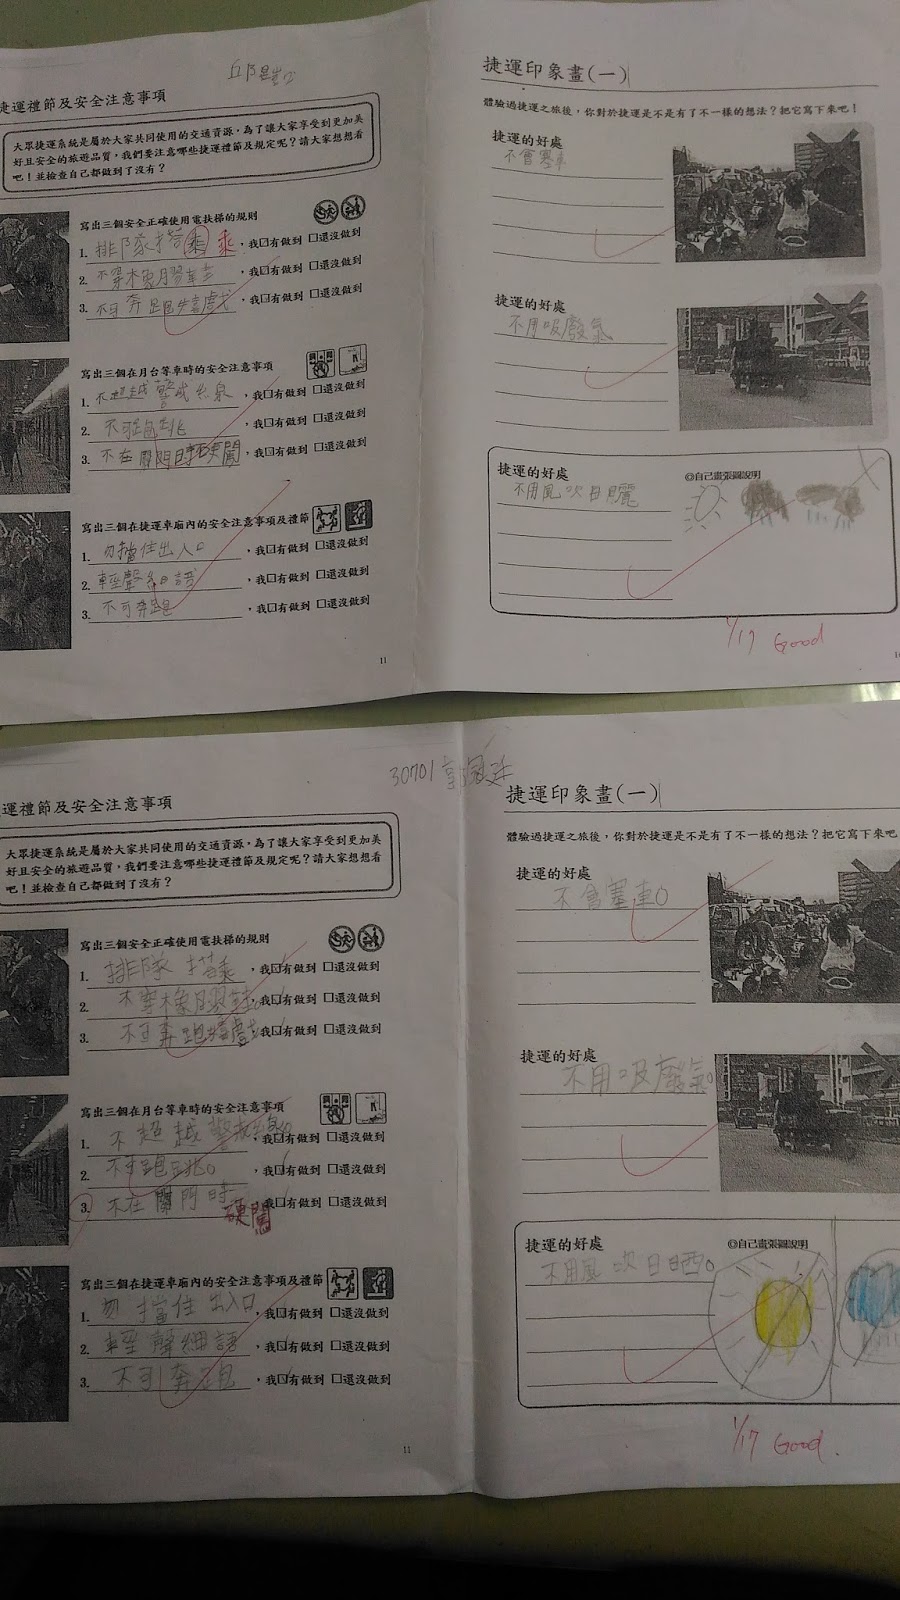 捷運禮節及安全注意事項
大眾捷運系統是屬於大家共同使用的交通資源，為了讓大家享受到更加美
好且安全的旅遊品質，我們要注意哪些捷運禮節及規定呢？請大家想想看
吧！並檢查自己都做到了沒有？
寫出三個安全正確使用電扶梯的規則
1. 排隊搭乘 乘，我☐有做到 ☐還沒做到
2. 不穿橡膠鞋，我☐有做到 ☐還沒做到
3. 不可奔跑嬉戲，我☐有做到 ☐還沒做到
寫出三個在月台等車時的安全注意事項
1. 不超越警戒線，我☐有做到 ☐還沒做到
2. 不可跑跳，我☐有做到 ☐還沒做到
3. 不在關門時硬闖，我☐有做到 ☐還沒做到
寫出三個在捷運車廂內的安全注意事項及禮節
1. 勿擋住出入口，我☐有做到 ☐還沒做到
2. 輕聲細語，我☐有做到 ☐還沒做到
3. 不可奔跑，我☐有做到 ☐還沒做到
11
捷運印象畫(一)
體驗過捷運之旅後，你對於捷運是不是有了不一樣的想法？把它寫下來吧！
捷運的好處
不會塞車
捷運的好處
不用吸廢氣
捷運的好處
◎自己畫張圖說明
不用風吹日曬
1/17 Good
30701
運禮節及安全注意事項
大眾捷運系統是屬於大家共同使用的交通資源，為了讓大家享受到更加美
好且安全的旅遊品質，我們要注意哪些捷運禮節及規定呢？請大家想想看
吧！並檢查自己都做到了沒有？
寫出三個安全正確使用電扶梯的規則
1. 排隊搭乘，我☑有做到 ☐還沒做到
2. 不穿橡膠鞋，我☑有做到 ☐還沒做到
3. 不可奔跑嬉戲，我☑有做到 ☐還沒做到
寫出三個在月台等車時的安全注意事項
1. 不超越警戒線。我☑有做到 ☐還沒做到
2. 不可跑跳。，我☑有做到 ☐還沒做到
3. 不在關門時硬闖 我☑有做到 ☐還沒做到
寫出三個在捷運車廂內的安全注意事項及禮節
1. 勿擋住出入口，我☑有做到 ☐還沒做到
2. 輕聲細語，我☑有做到 ☐還沒做到
3. 不可奔跑，我☑有做到 ☐還沒做到
11
捷運印象畫(一)
體驗過捷運之旅後，你對於捷運是不是有了不一樣的想法？把它寫下來吧
捷運的好處
不會塞車。
捷運的好處
不用吸廢氣。
捷運的好處
◎自己畫張圖說明
不用風吹日晒。
1/17 Good.